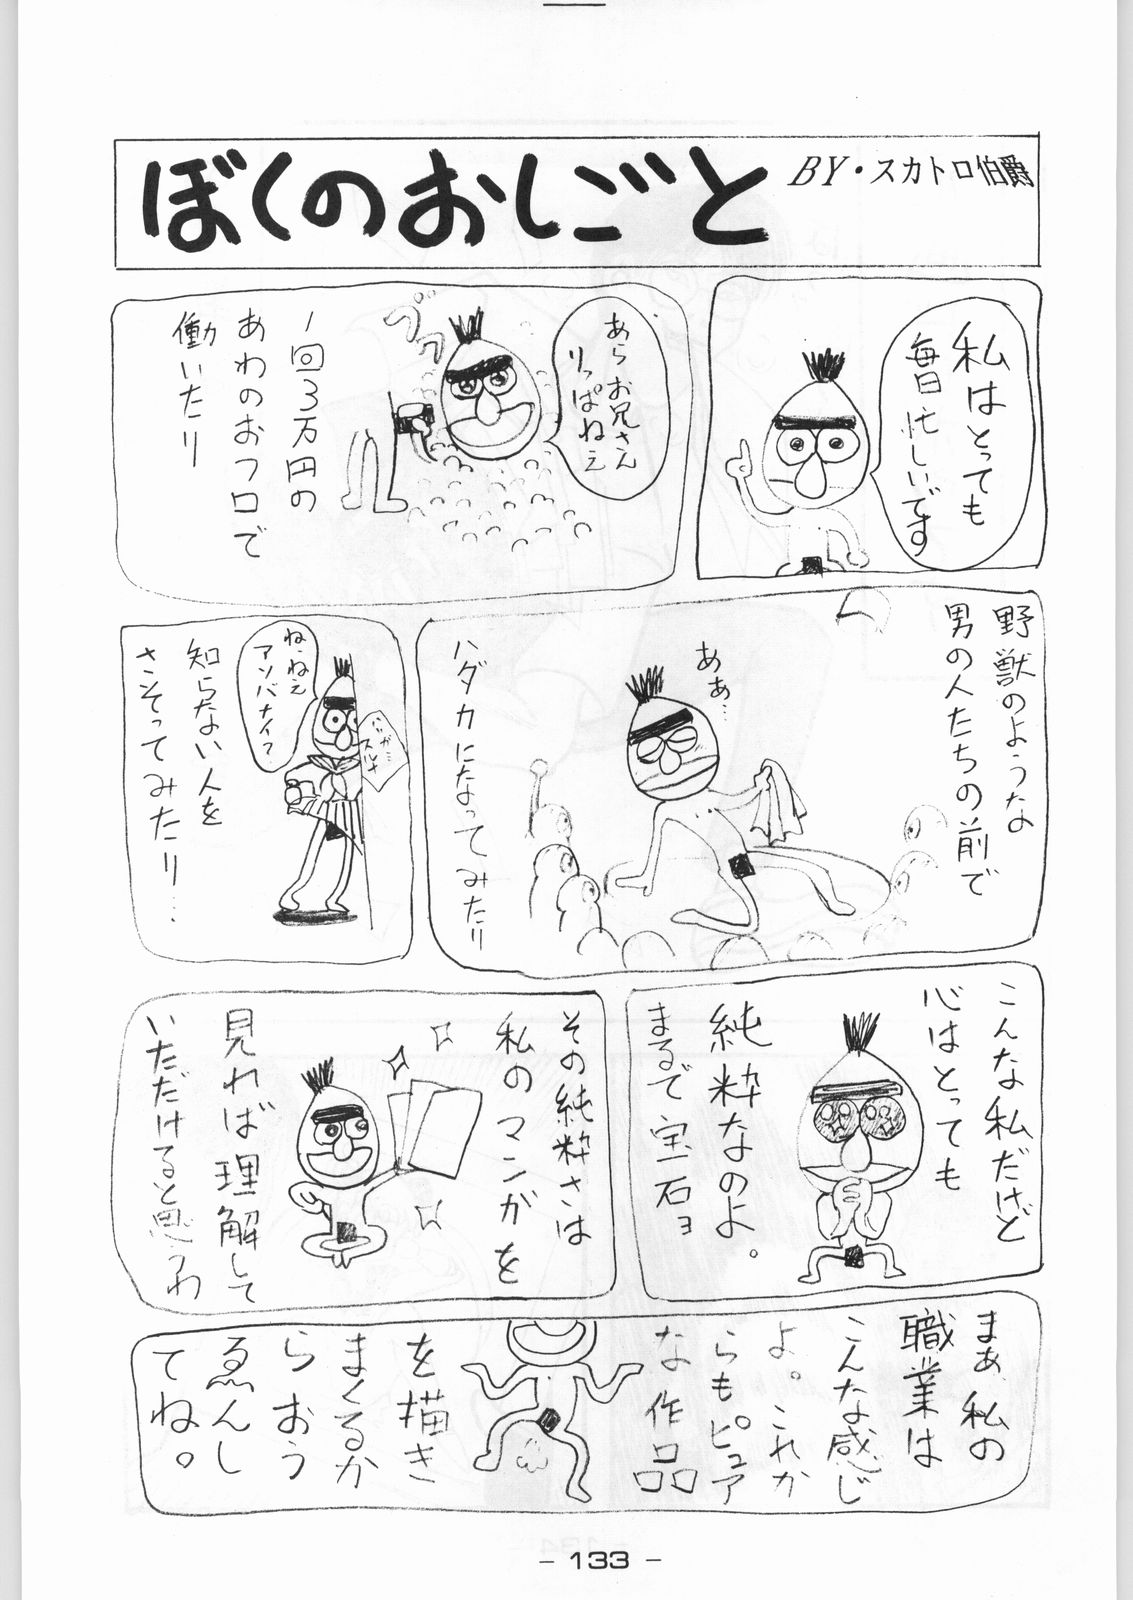 ぼくのおしごと
BY・スカトロ伯爵
私はとっても
毎日忙しいです
あらお兄さん
りっぱねぇ
1回3万円の
あわのおフロで
働いたり
野獣のような
男の人たちの前で
あぁ…
ハダカになってみたり
ね・ねえ
アソバナイ?
知らない人を
さそってみたり…
こんな私だけど
心はとっても
純粋なのよ。
まるで宝石ョ
その純粋さは
私のマンガを
見れば理解して
いただけると思うわ
まぁ、私の
職業は
こんな感じ
よ。これか
らもピュア
な作品
を描き
まくるか
らおう
ゑんし
てね。
- 133 -